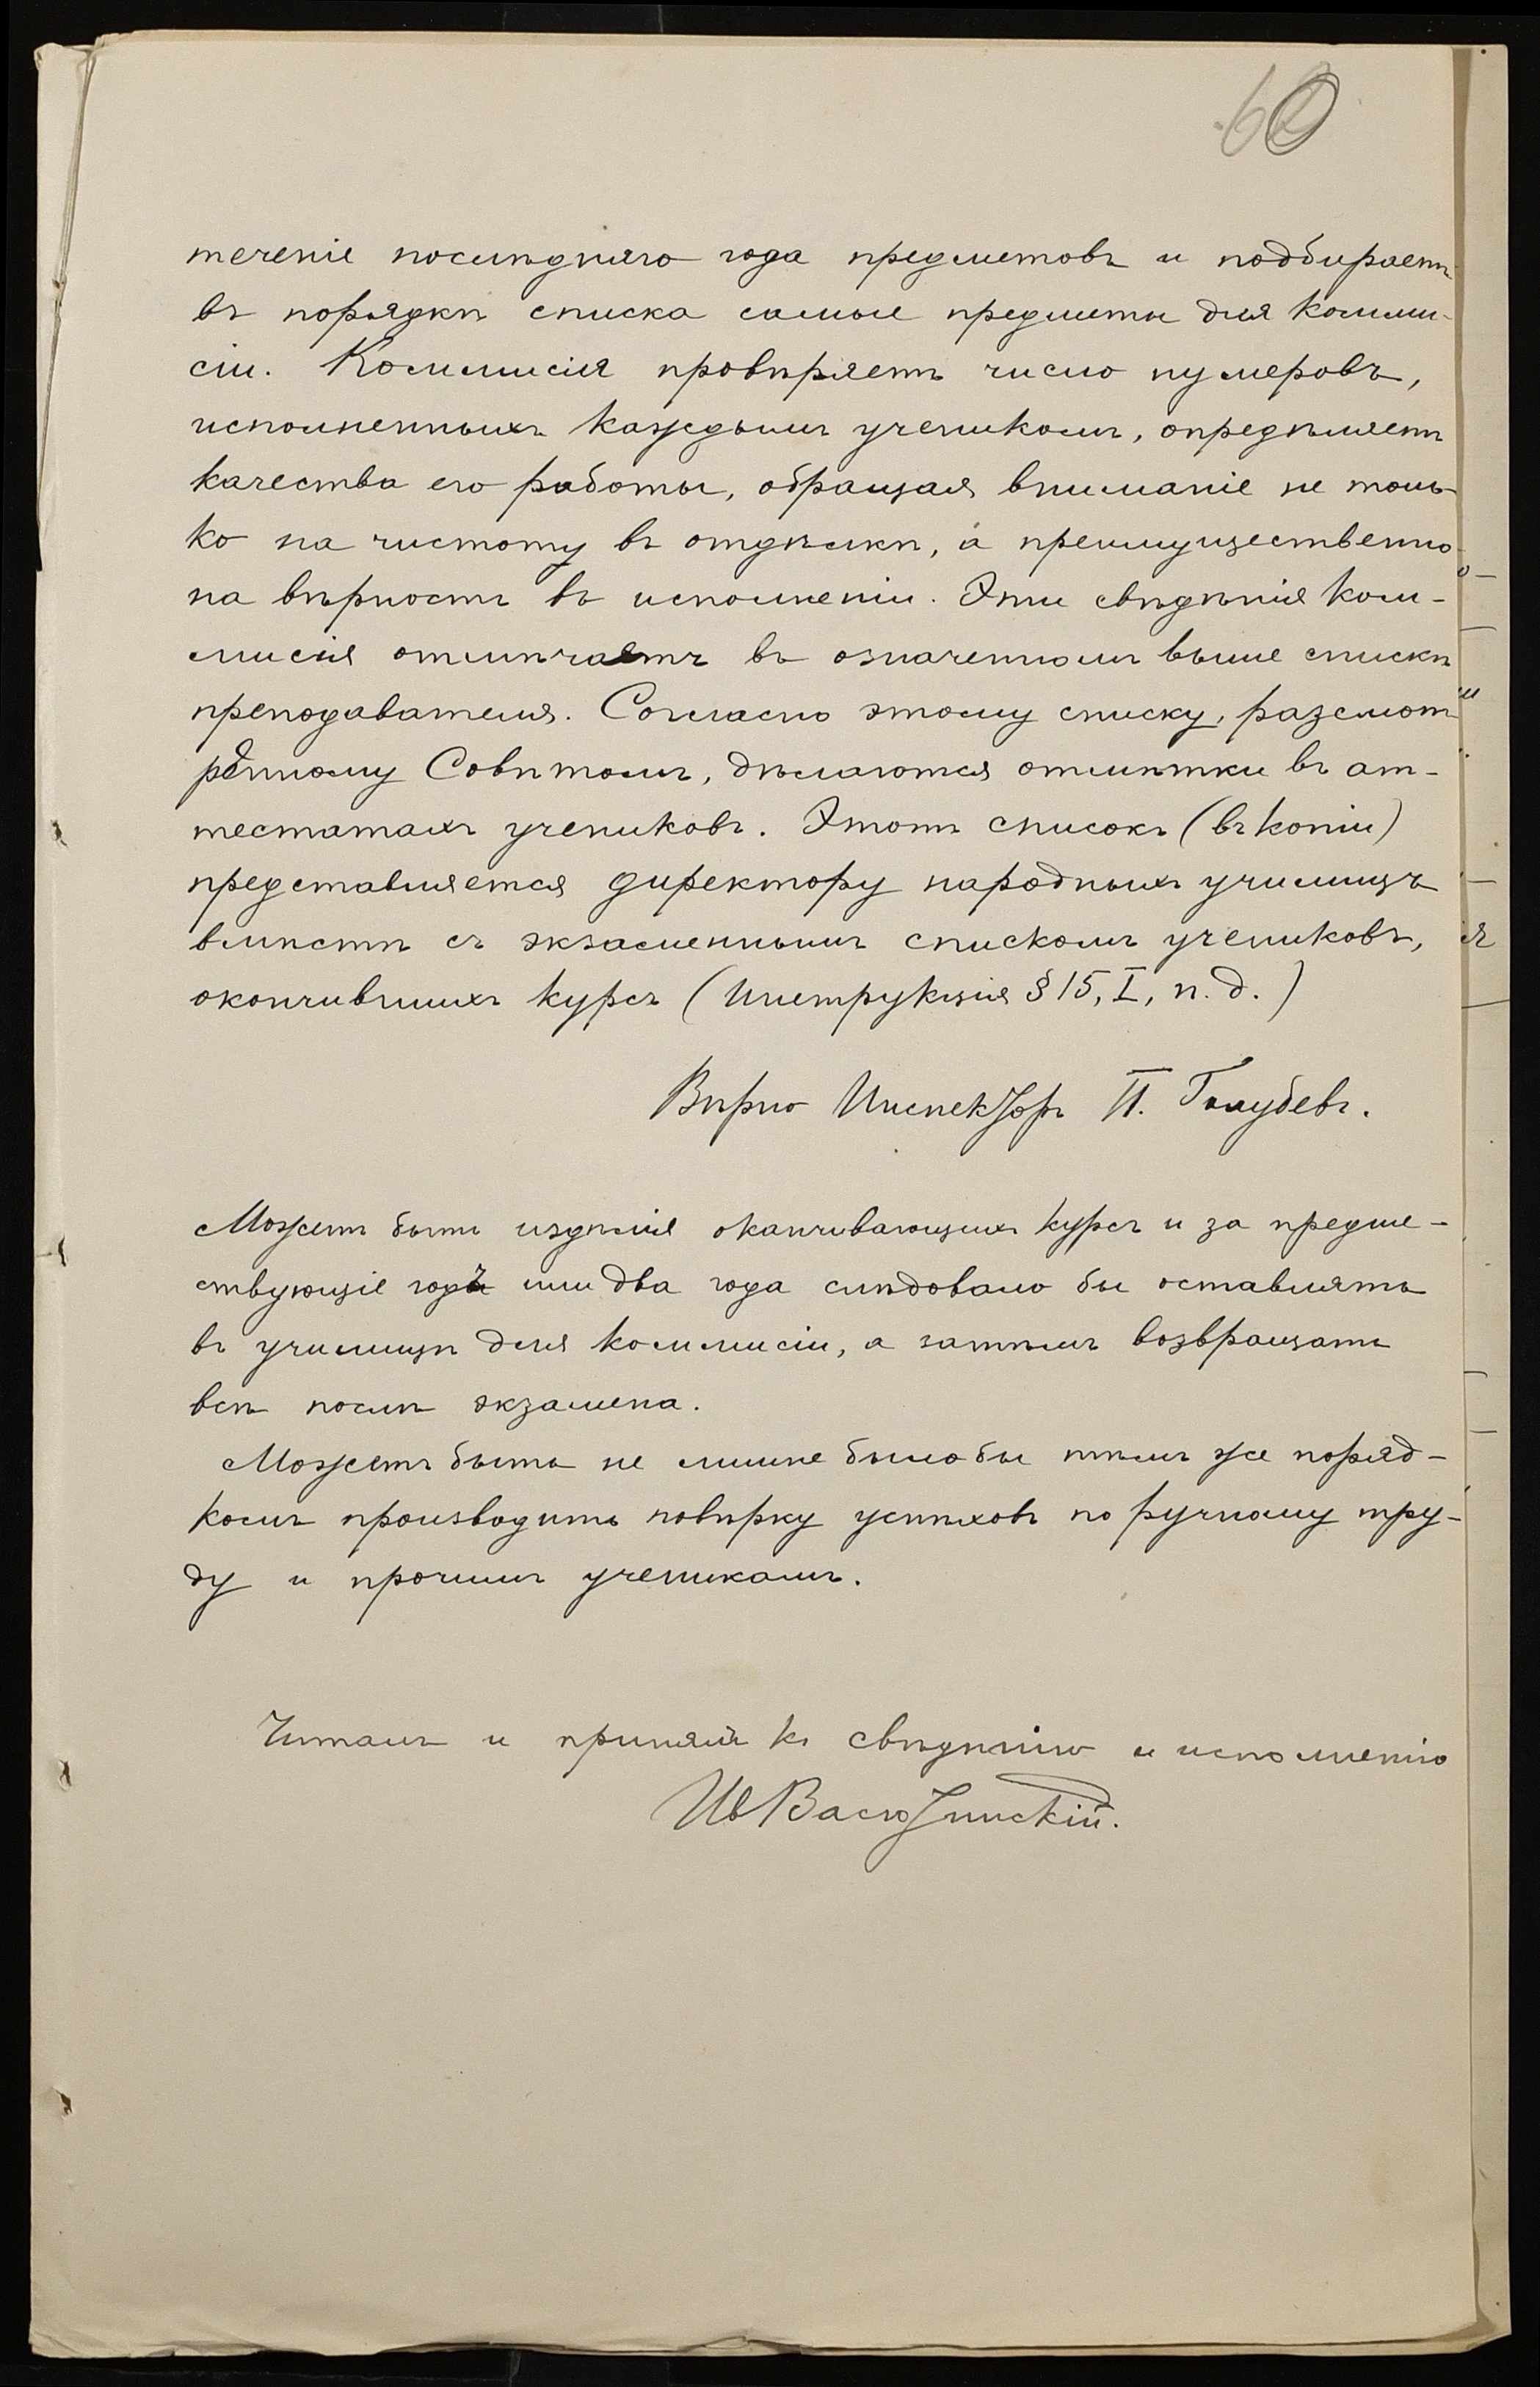 60
теченіе послѣдняго года предметовъ и подбираетъ
въ порядкѣ списка самые предметы для комми-
сіи. Коммисія провѣряетъ число нумеровъ,
исполненныхъ каждымъ ученикомъ, опредѣляетъ
качества его работы, обращая вниманіе не толь-
ко на чистоту въ отдѣлкѣ, а преимущественно
на вѣрность въ исполненіи. Эти свѣдѣнія ком-
мисія отмѣчаетъ въ означенномъ выше спискѣ
преподавателя. Согласно этому списку, разсмот-
рѣнному Совѣтомъ, дѣлаются отмѣтки въ ат-
тестатахъ учениковъ. Этотъ списокъ (въ копіи)
представляется директору народныхъ училищъ
вмѣстѣ съ экзаменнымъ спискомъ учениковъ,
окончившихъ курсъ (Инструкція § 15, I, п. д.)
Вѣрно Инспекторъ П. Голубевъ.
Можетъ быть издѣлія оканчивающихъ курсъ и за предше-
ствующіе годъ или два года слѣдовало бы оставлять
въ училищѣ для коммисіи, а затѣмъ возвращать
всѣ послѣ экзамена.
Можетъ быть не лишне было бы тѣмъ же поряд-
комъ производить повѣрку успѣховъ по ручному тру-
ду и прочимъ ученикамъ.
Читалъ и принялъ къ свѣдѣнію и исполненію
Ив Васютинскій.